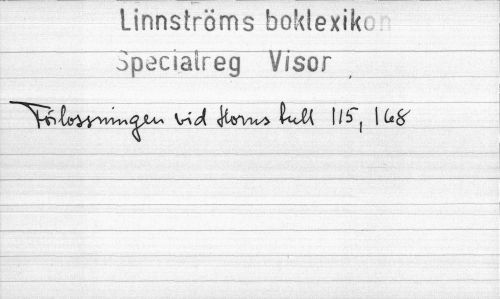 Linnströms boklexikon
Specialreg Visor
Förlossningen vid Horns tull 115, 168